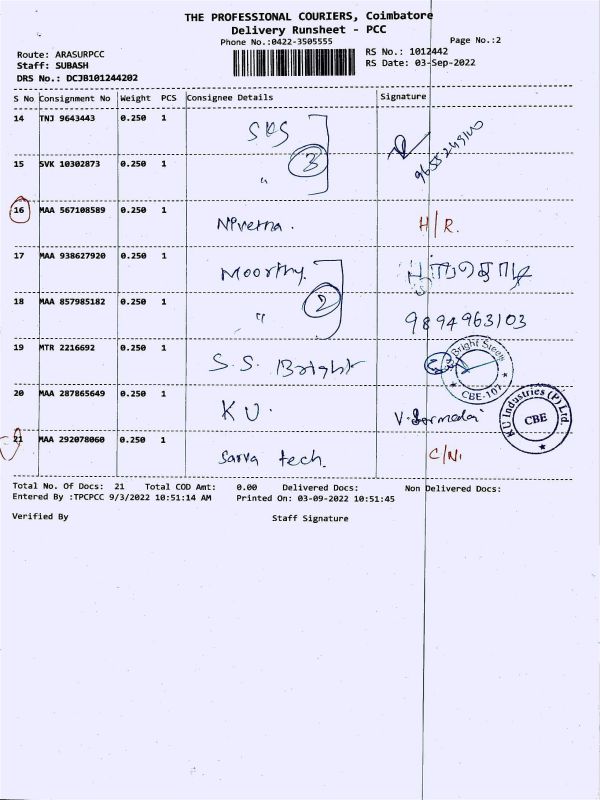 THE PROFESSIONAL COURIERS, Coimbatore
Delivery Runsheet - PCC
Phone No.:0422-3505555
Page No.:2
Route: ARASURPCC
RS No.: 1012442
Staff: SUBASH
RS Date: 03-Sep-2022
DRS No.: DCJB101244202
S No Consignment No Weight PCS Consignee Details Signature
14 TNJ 9643443 0.250 1 SKS
3
15 SVK 10302873 0.250 1 "
16 MAA 567108589 0.250 1 Nivetha . H/R.
17 MAA 938627920 0.250 1 Moorthy.
2
18 MAA 857985182 0.250 1 " 9894963103
19 MTR 2216692 0.250 1 S.S. Bright
Bright Steels
CBE-107
20 MAA 287865649 0.250 1 KU.
K U Industries (P) Ltd.
CBE
21 MAA 292078060 0.250 1 Sarva tech. C/N.
Total No. Of Docs: 21 Total COD Amt: 0.00 Delivered Docs: Non Delivered Docs:
Entered By :TPCPCC 9/3/2022 10:51:14 AM Printed On: 03-09-2022 10:51:45
Verified By Staff Signature